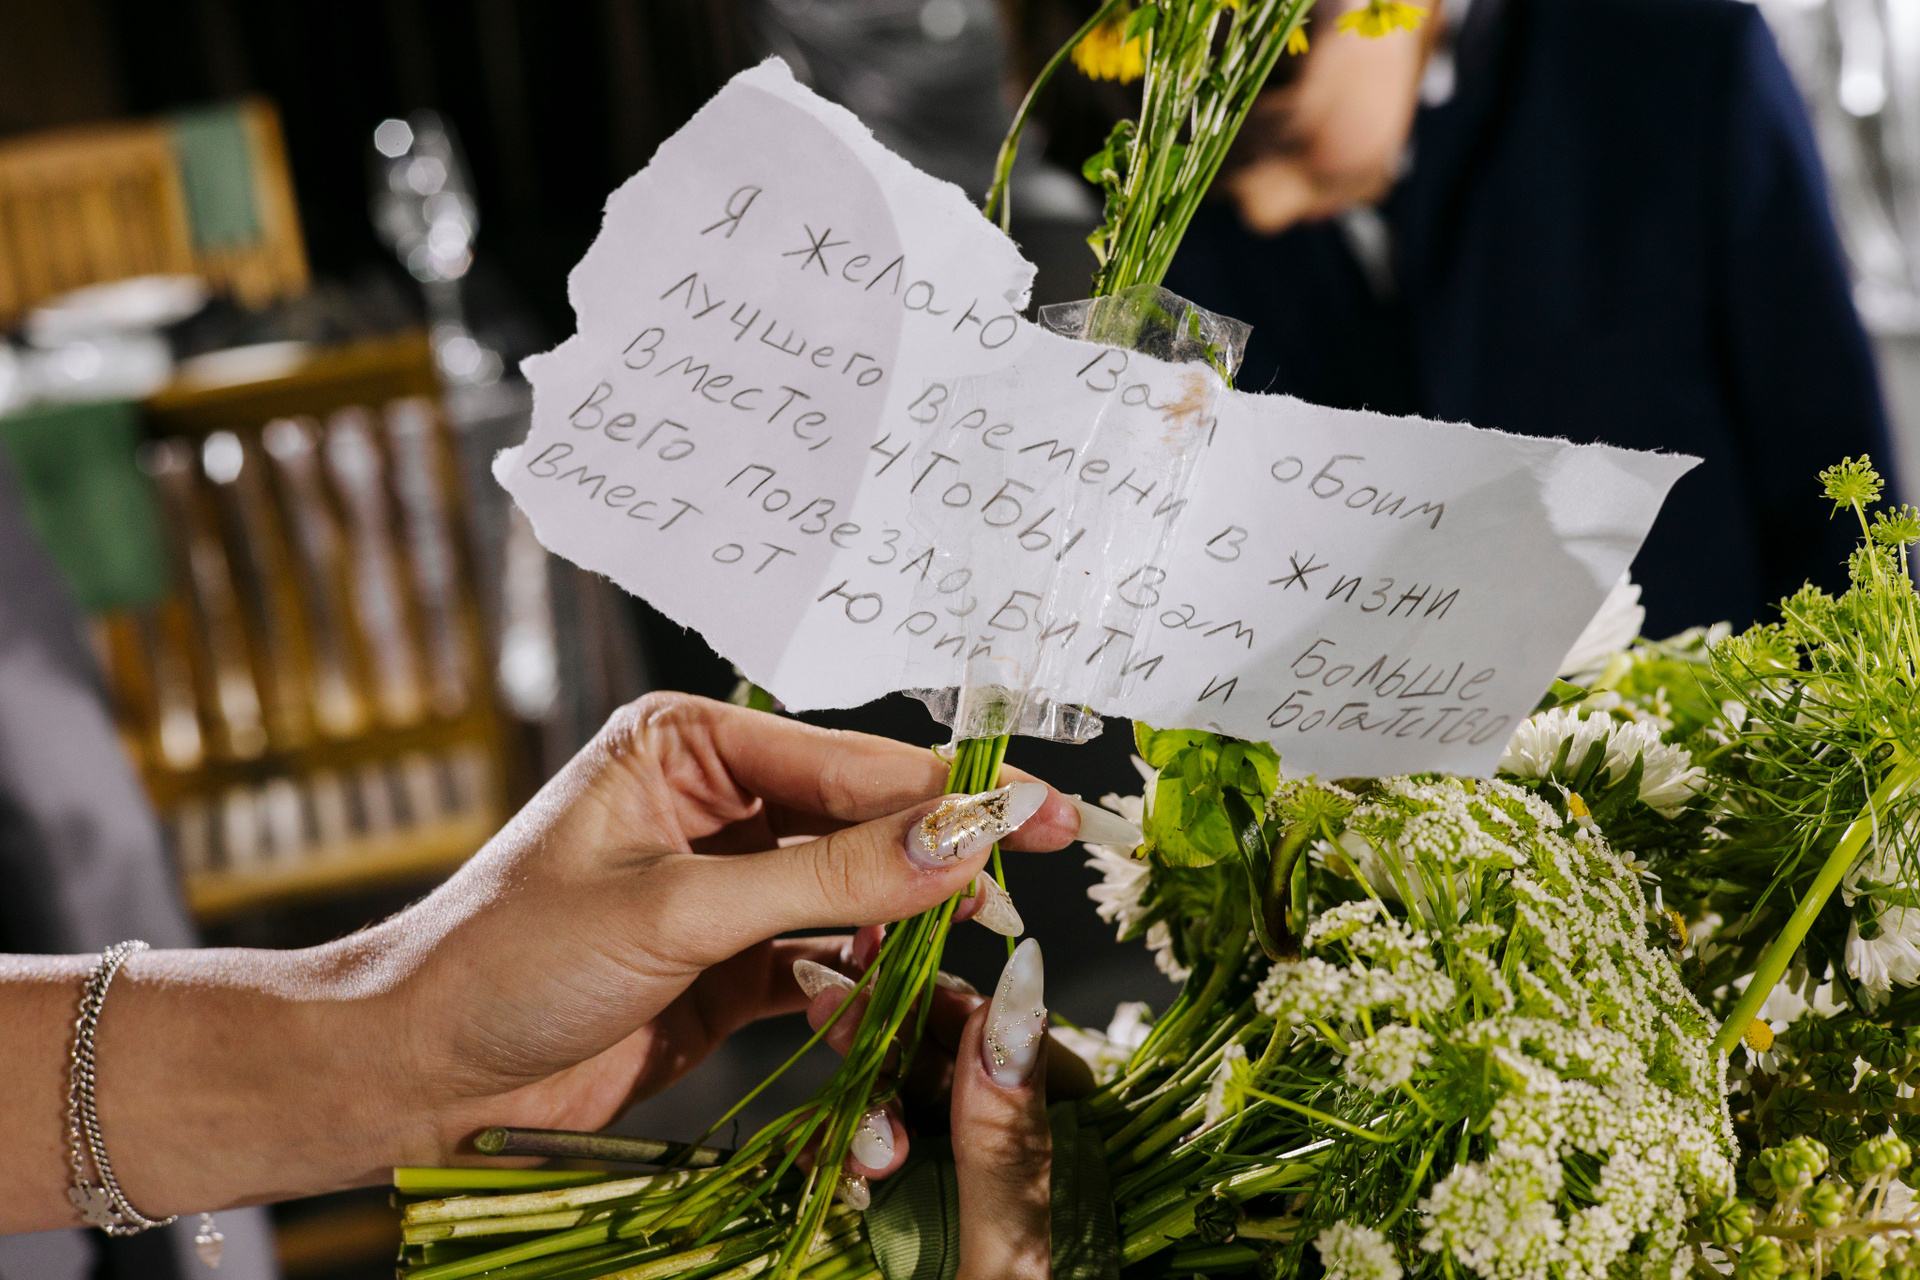 Я желаю Вам обоим
лучшего времени в жизни
вместе, чтобы Вам больше
вего повезло, Бити и богатство
вмест от Юрий